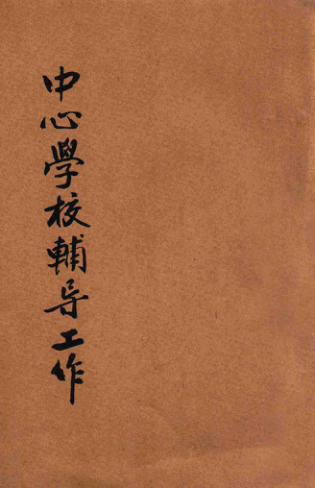 中心學校輔导工作